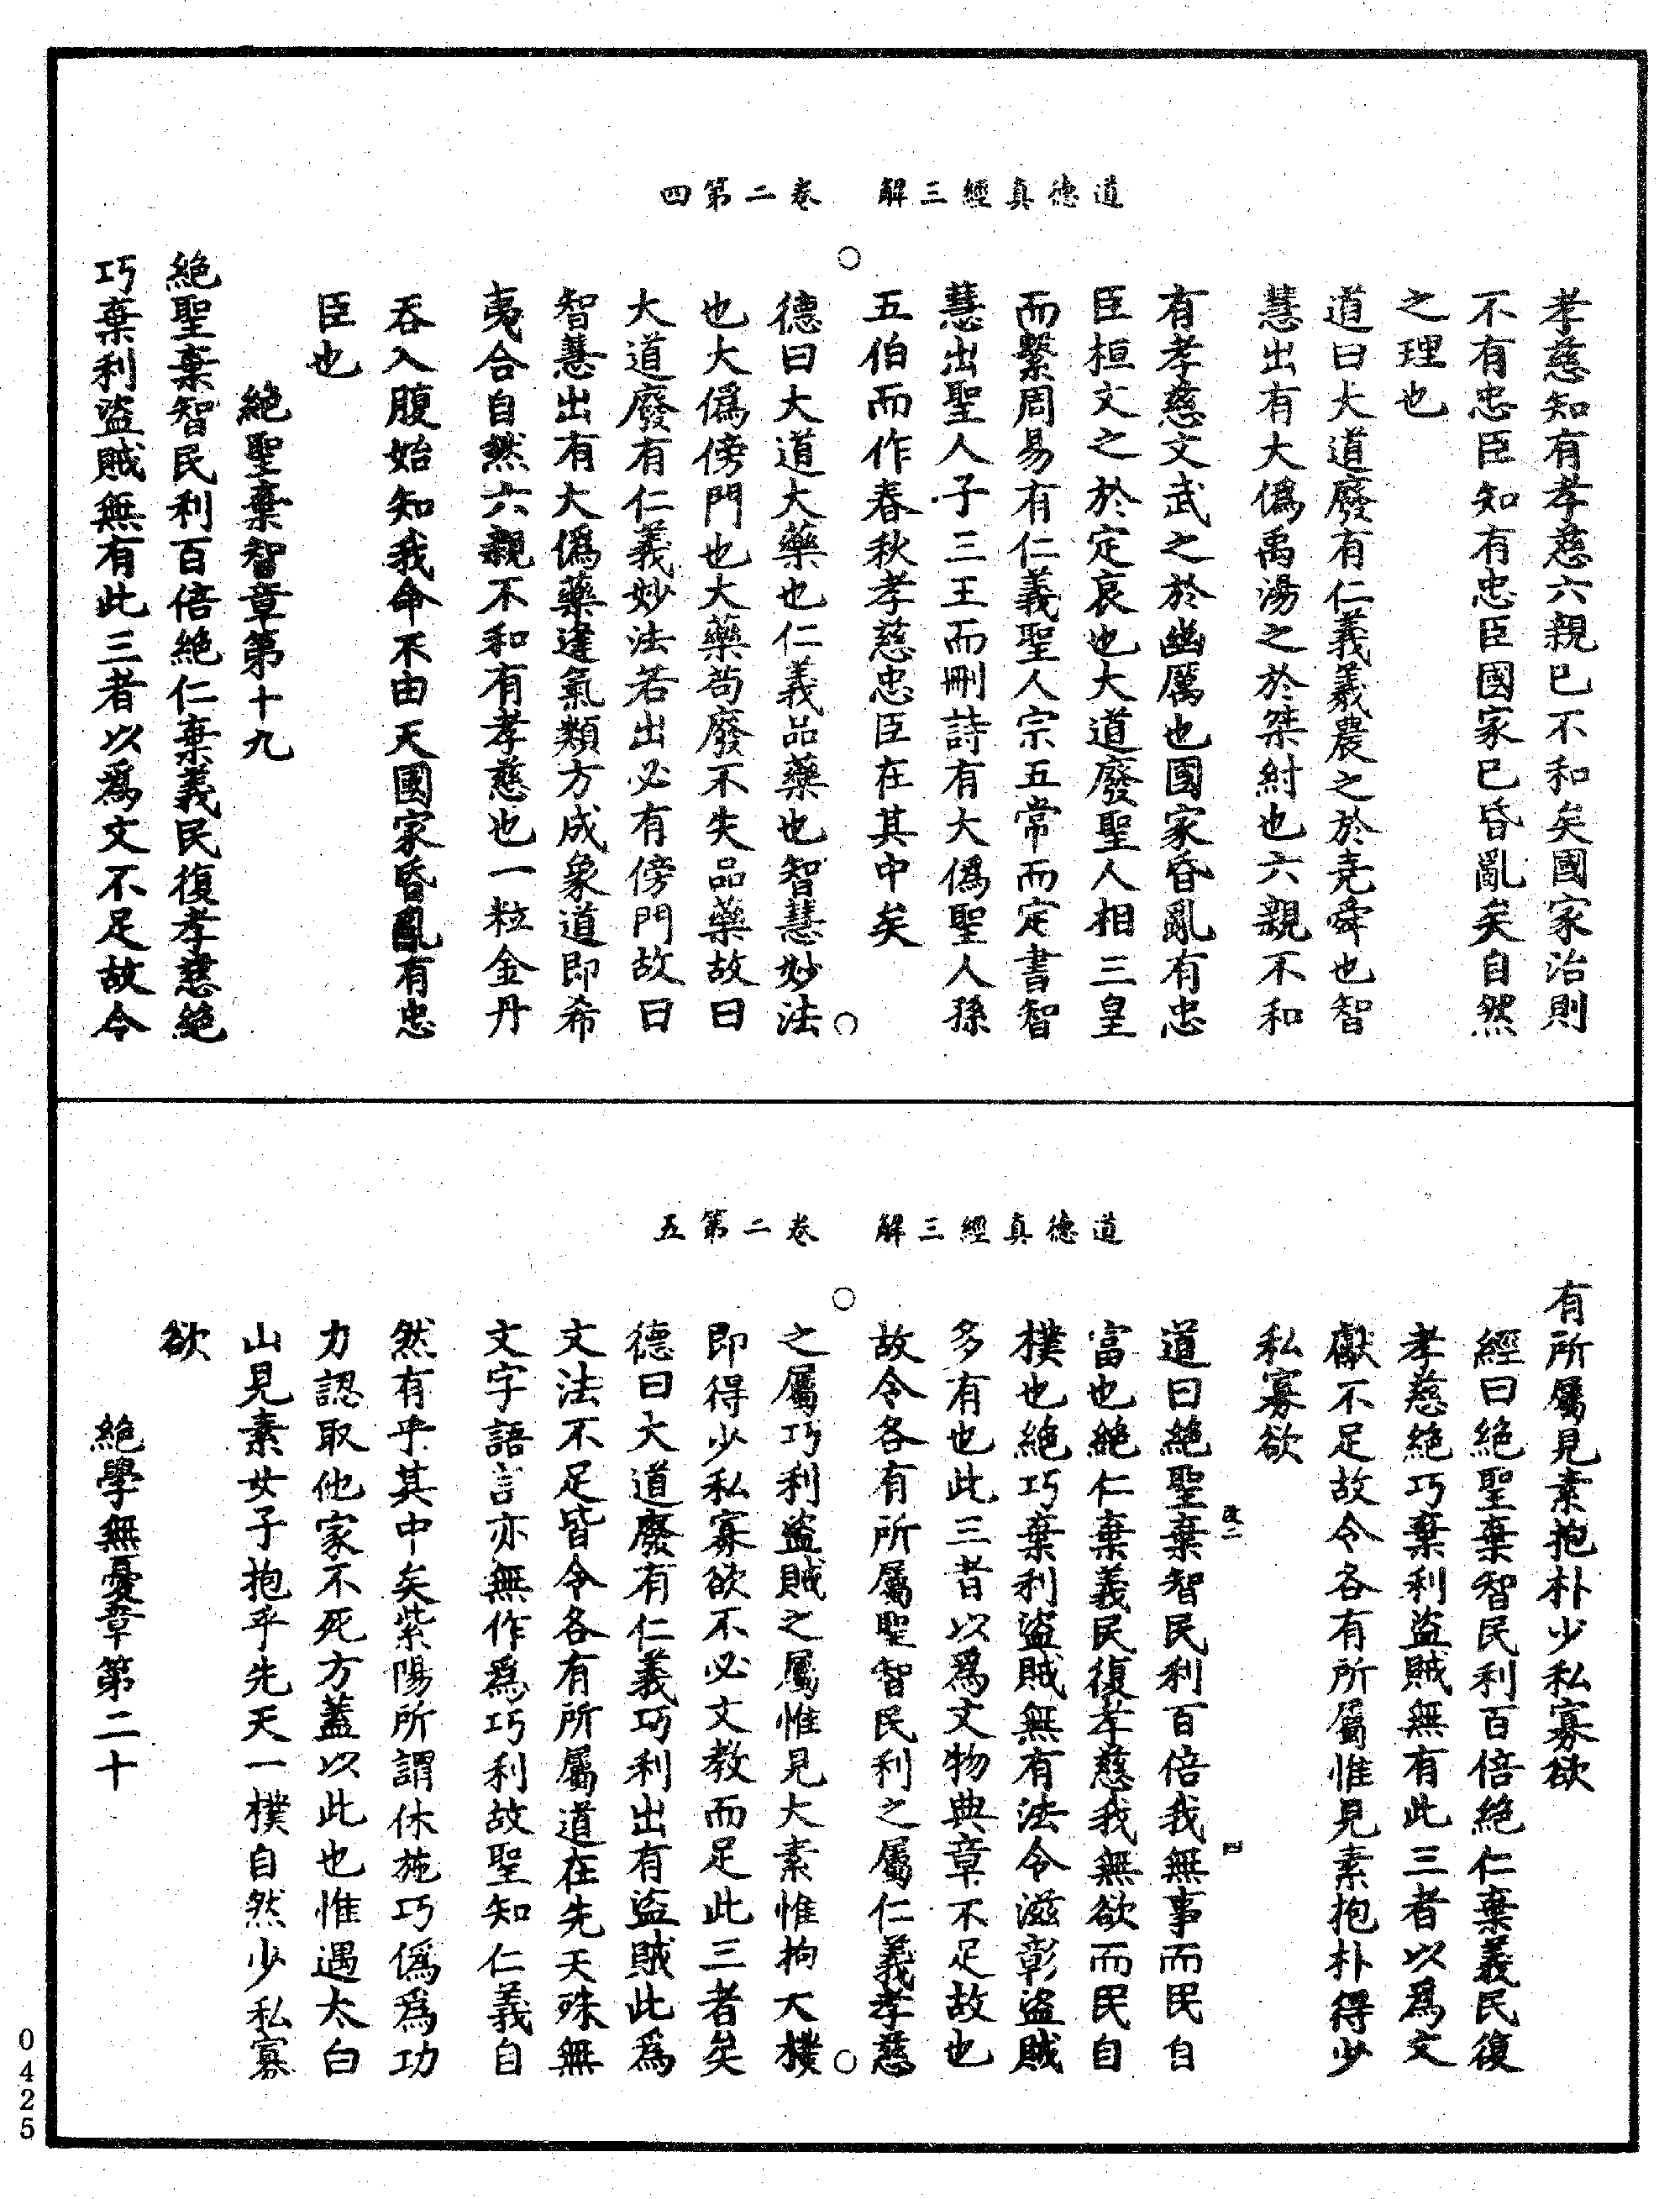 道德真經三解　卷二第四
孝慈知有孝慈六親已不和矣國家治則
不有忠臣知有忠臣國家已昏亂矣自然
之理也
道曰大道廢有仁義羲農之於堯舜也智
慧出有大偽禹湯之於桀紂也六親不和
有孝慈文武之於幽厲也國家昏亂有忠
臣桓文之於定哀也大道廢聖人相三皇
而繫周易有仁義聖人宗五常而定書智
慧出聖人子三王而刪詩有大偽聖人孫
五伯而作春秋孝慈忠臣在其中矣
德曰大道大藥也仁義品藥也智慧妙法
也大偽傍門也大藥苟廢不失品藥故曰
大道廢有仁義妙法若出必有傍門故曰
智慧出有大偽藥達氣類方成象道即希
夷合自然六親不和有孝慈也一粒金丹
吞入腹始知我命不由天國家昏亂有忠
臣也
絕聖棄智章第十九
絕聖棄智民利百倍絕仁棄義民復孝慈絕
巧棄利盜賊無有此三者以為文不足故令
道德真經三解　卷二第五
有所屬見素抱朴少私寡欲
經曰絕聖棄智民利百倍絕仁棄義民復
孝慈絕巧棄利盜賊無有此三者以為文
獻不足故令各有所屬惟見素抱朴得少
私寡欲
改二　四
道曰絕聖棄智民利百倍我無事而民自
富也絕仁棄義民復孝慈我無欲而民自
樸也絕巧棄利盜賊無有法令滋彰盜賊
多有也此三者以為文物典章不足故也
故令各有所屬聖智民利之屬仁義孝慈
之屬巧利盜賊之屬惟見大素惟拘大樸
即得少私寡欲不必文教而足此三者矣
德曰大道廢有仁義巧利出有盜賊此為
文法不足皆令各有所屬道在先天殊無
文字語言亦無作為巧利故聖知仁義自
然有乎其中矣紫陽所謂休施巧偽為功
力認取他家不死方蓋以此也惟遇太白
山見素女子抱乎先天一樸自然少私寡
欲
絕學無憂章第二十
0425